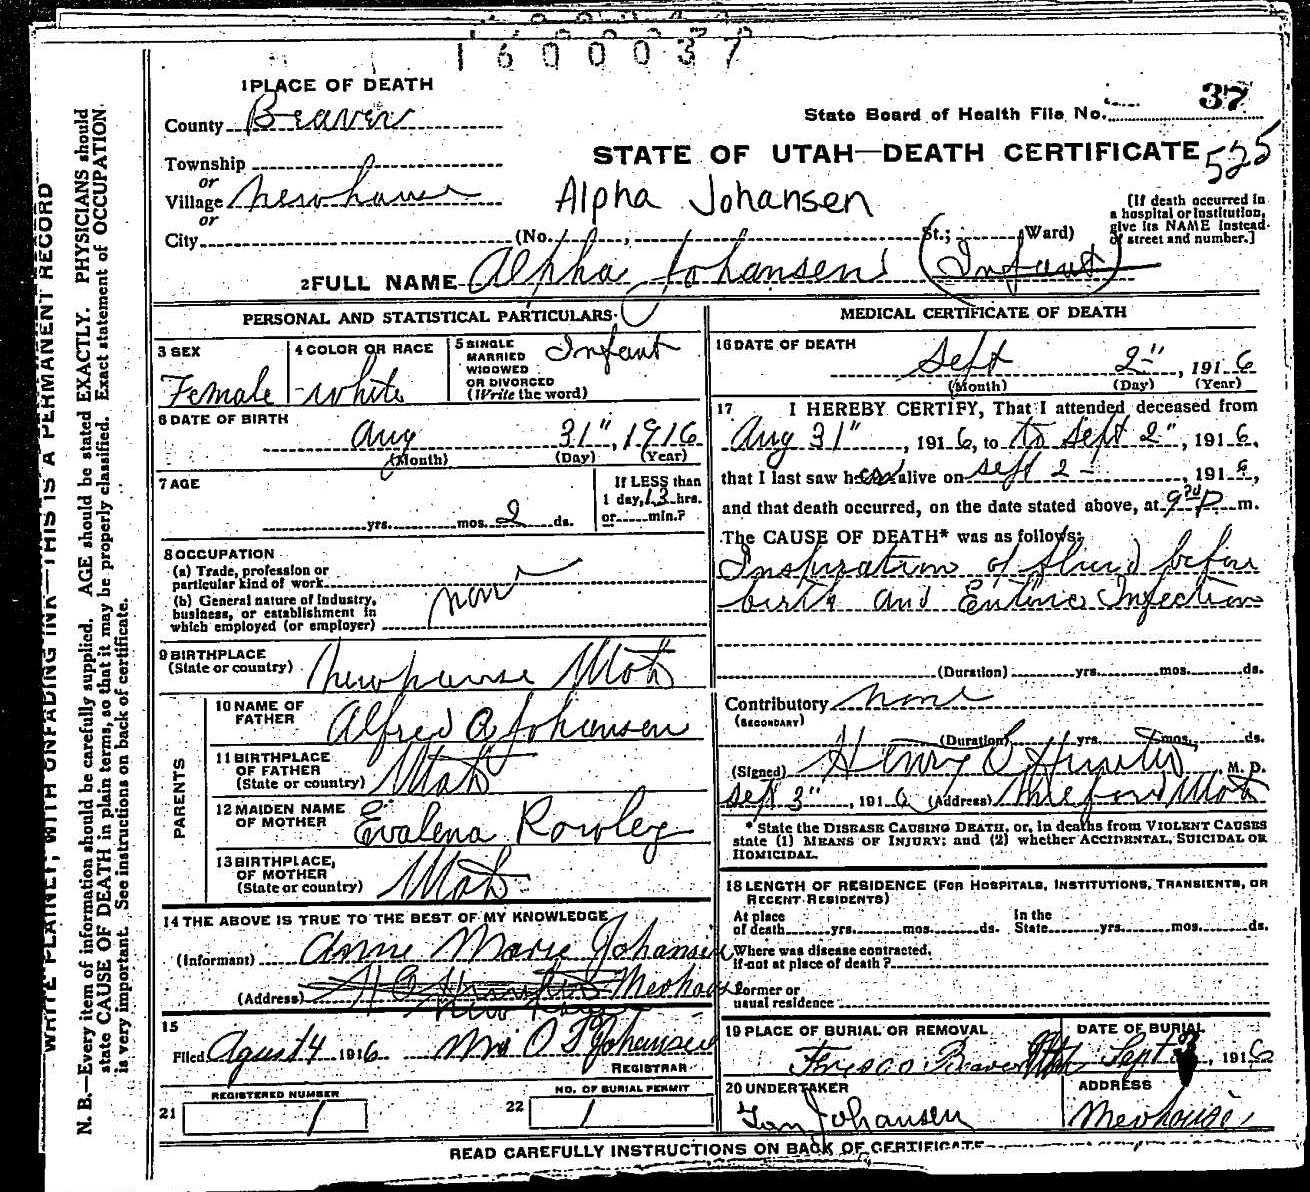 1600037
1 PLACE OF DEATH
County Beaver
State Board of Health File No. 37
STATE OF UTAH—DEATH CERTIFICATE 525
Township
or
Village Newhouse
Alpha Johansen
or
City (No. , St.; Ward)
[If death occurred in
a hospital or institution,
give its NAME instead
of street and number.]
2 FULL NAME Alpha Johansen (Infant)
PERSONAL AND STATISTICAL PARTICULARS
3 SEX
Female
4 COLOR OR RACE
White
5 SINGLE
MARRIED
WIDOWED
OR DIVORCED
(Write the word)
Infant
6 DATE OF BIRTH
Aug 31", 1916
(Month) (Day) (Year)
7 AGE
yrs. mos. 2 ds.
If LESS than
1 day, 13 hrs.
or min.?
8 OCCUPATION
(a) Trade, profession or
particular kind of work
(b) General nature of industry,
business, or establishment in
which employed (or employer)
none
9 BIRTHPLACE
(State or country) Newhouse Utah
PARENTS
10 NAME OF
FATHER Alfred A Johansen
11 BIRTHPLACE
OF FATHER
(State or country) Utah
12 MAIDEN NAME
OF MOTHER Evalena Rowley
13 BIRTHPLACE,
OF MOTHER
(State or country) Utah
14 THE ABOVE IS TRUE TO THE BEST OF MY KNOWLEDGE
(Informant) Anne Marie Johansen
(Address) Newhouse
15
Filed Agust 4 1916 Mrs O F Johansen
REGISTRAR
21 REGISTERED NUMBER
1
22 NO. OF BURIAL PERMIT
1
MEDICAL CERTIFICATE OF DEATH
16 DATE OF DEATH
Sept 2", 1916
(Month) (Day) (Year)
17 I HEREBY CERTIFY, That I attended deceased from
Aug 31", 1916, to to Sept 2", 1916,
that I last saw her alive on Sept 2 -, 1916,
and that death occurred, on the date stated above, at P m.
The CAUSE OF DEATH* was as follows:
Inspiration of fluid before
birth and Enteric Infection
(Duration) yrs. mos. ds.
Contributory none
(SECONDARY)
(Duration) yrs. mos. ds.
(Signed) Henry M. D.
Sept 3", 1916 (Address) Milford Utah
* State the DISEASE CAUSING DEATH, or, in deaths from VIOLENT CAUSES
state (1) MEANS OF INJURY; and (2) whether ACCIDENTAL, SUICIDAL OR
HOMICIDAL.
18 LENGTH OF RESIDENCE (FOR HOSPITALS, INSTITUTIONS, TRANSIENTS, OR
RECENT RESIDENTS)
At place
of death yrs. mos. ds.
In the
State yrs. mos. ds.
Where was disease contracted,
if not at place of death?
Former or
usual residence
19 PLACE OF BURIAL OR REMOVAL
Frisco Beaver
DATE OF BURIAL
Sept , 1916
20 UNDERTAKER
Johansen
ADDRESS
Newhouse
READ CAREFULLY INSTRUCTIONS ON BACK OF CERTIFICATE
WRITE PLAINLY, WITH UNFADING INK—THIS IS A PERMANENT RECORD
N. B.—Every item of information should be carefully supplied. AGE should be stated EXACTLY. PHYSICIANS should
state CAUSE OF DEATH in plain terms, so that it may be properly classified. Exact statement of OCCUPATION
is very important. See instructions on back of certificate.